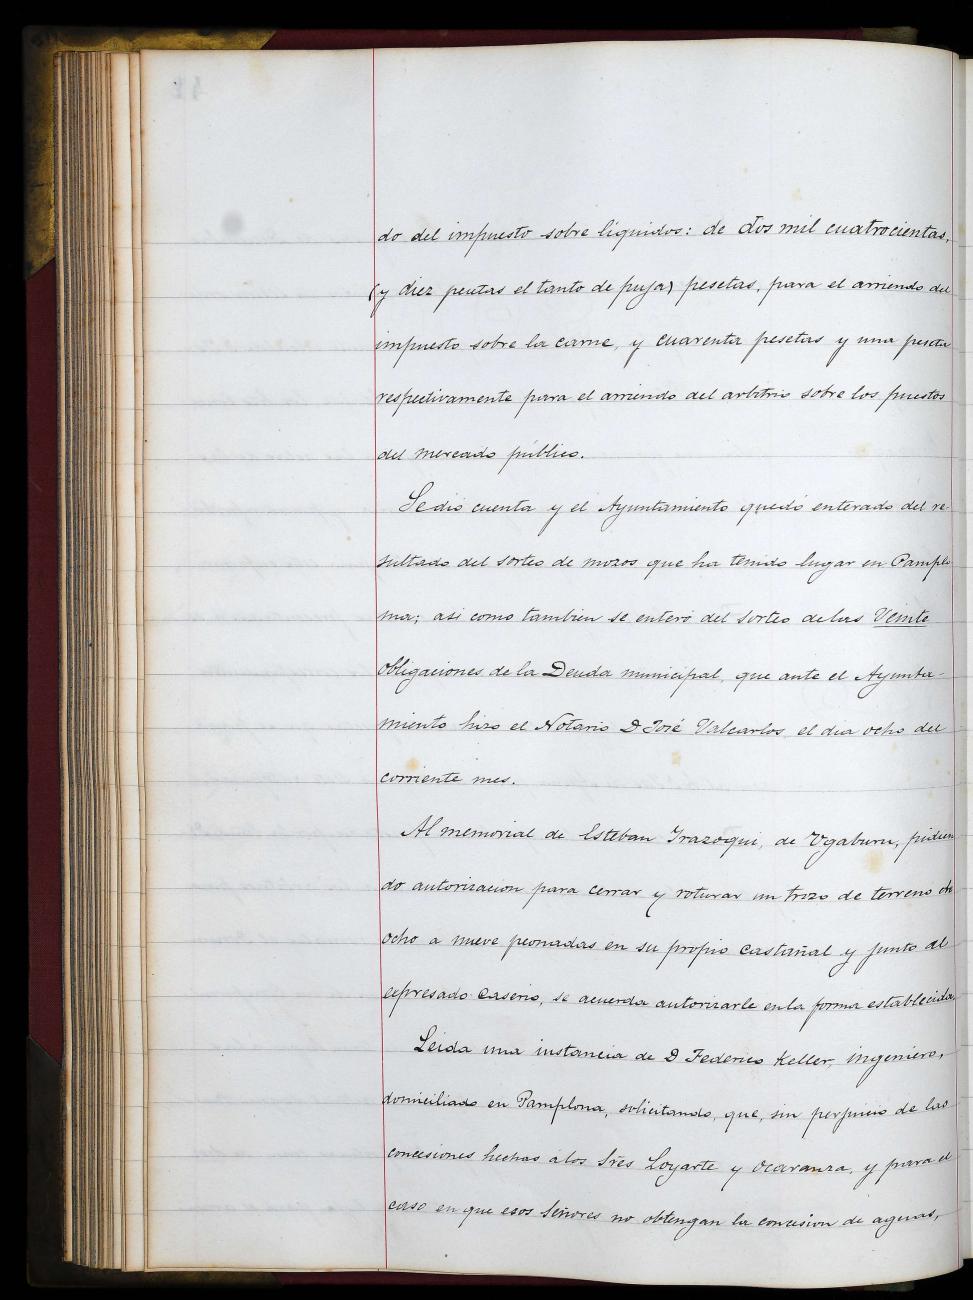 do del impuesto sobre líquidos: de dos mil cuatrocientas,
(y diez pesetas el tanto de puja) pesetas, para el arriendo del
impuesto sobre la carne, y cuarenta pesetas y una peseta
respectivamente para el arriendo del arbitrio sobre los puestos
del mercado público.
Se dió cuenta y el Ayuntamiento quedó enterado del re-
sultado del sorteo de mozos que ha tenido lugar en Pamplo
na; asi como tambien se enteró del sorteo de las Veinte
obligaciones de la Deuda municipal, que ante el Ayunta-
miento hizo el Notario D José Valcarlos el dia ocho del
corriente mes.
Al memorial de Esteban Irazoqui, de Ugaburu, pidien
do autorizacion para cerrar y roturar un trozo de terreno de
ocho a nueve peonadas en su propio castañal y junto al
expresado caserio, se acuerda autorizarle en la forma establecida.
Leida una instancia de D Federico Keller, ingeniero,
domiciliado en Pamplona, solicitando, que, sin perjuicio de las
concesiones hechas a los Sres Loyarte y Ocaranza, y para el
caso en que esos Señores no obtengan la concesion de aguas,